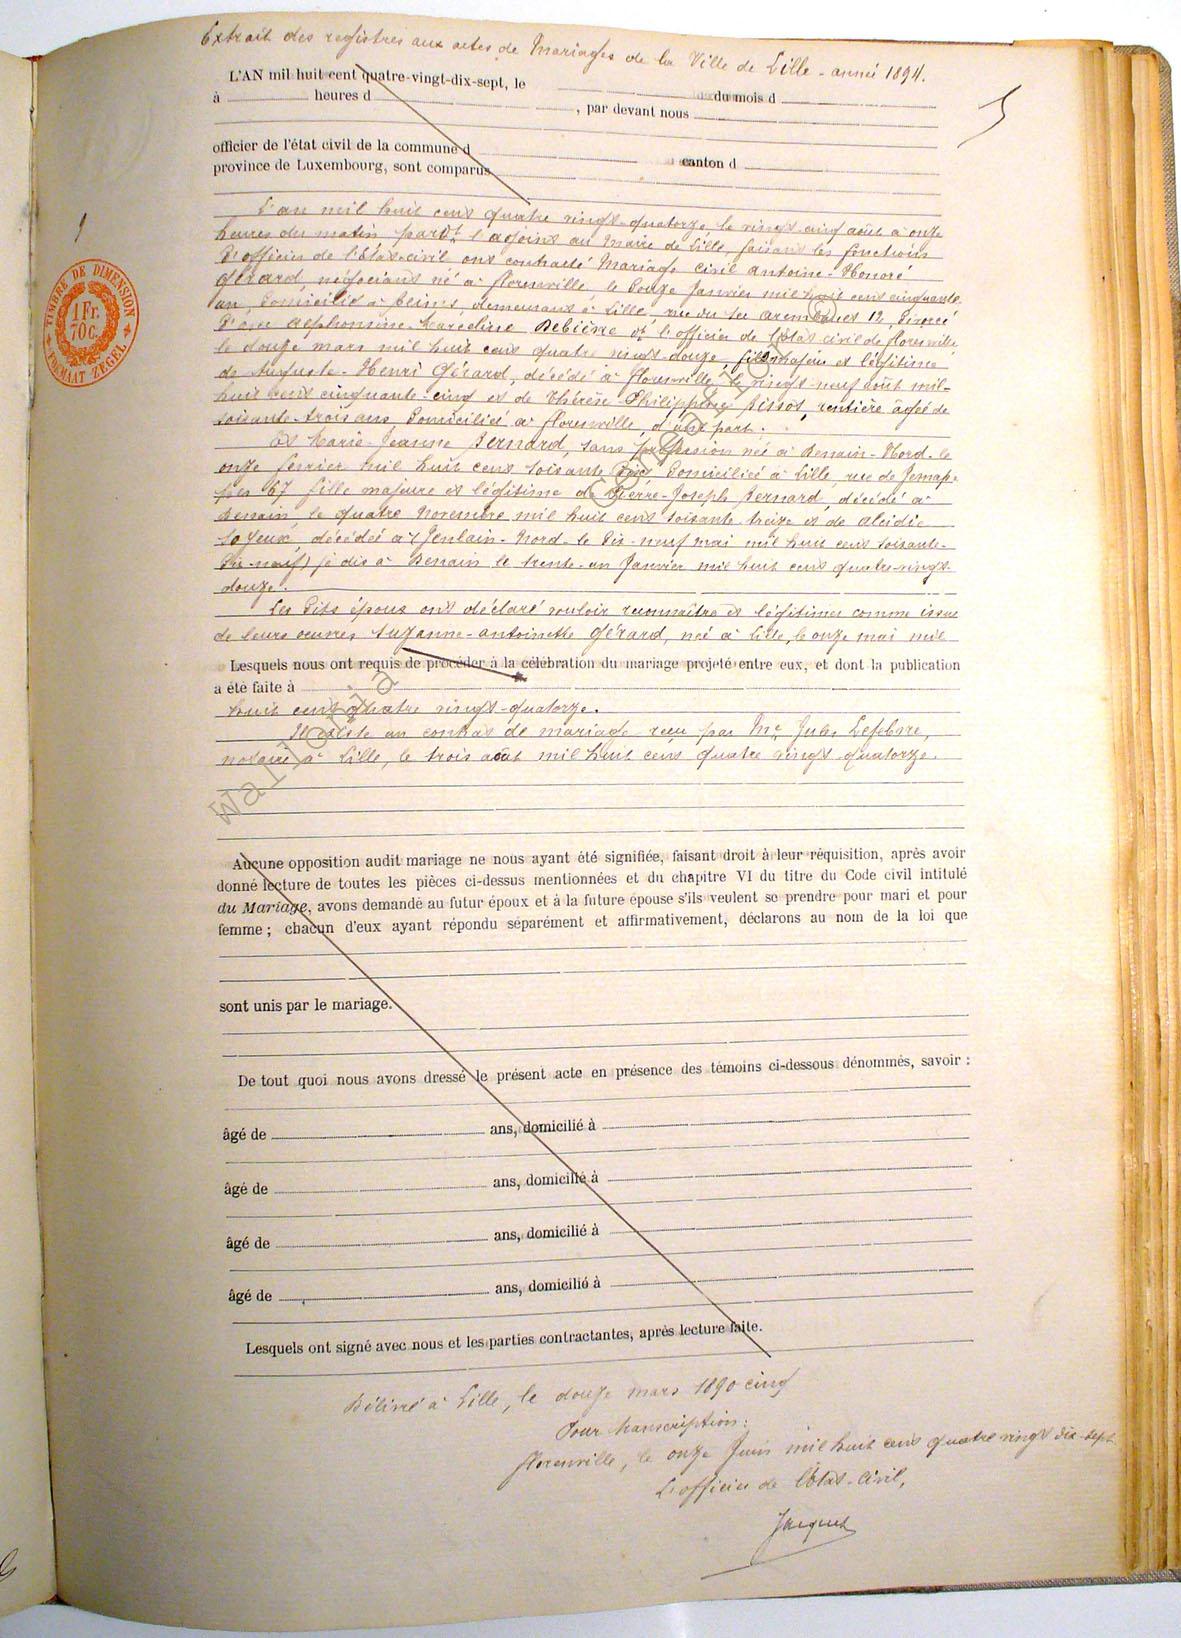 Extrait des registres aux actes de Mariages de la Ville de Lille - année 1894.
L'AN mil huit cent quatre-vingt-dix-sept, le du mois d
à heures d , par devant nous
officier de l'état civil de la commune d canton d
province de Luxembourg, sont comparus
1
5
TIMBRE DE DIMENSION
1 Fr.
70 c.
FORMAAT ZEGEL
L'an mil huit cent quatre vingt-quatorze, le vingt-cinq août à onze
heures du matin pardt l'adjoint au Maire de Lille, faisant les fonctions
d'officier de l'État-civil ont contracté Mariage civil Antoine-Honoré
Gérard, négociant né à Florenville le douze Janvier mil huit cent cinquante
un, domicilié à Reims, demeurant à Lille, rue du 12, Divorcé
d'avec Alphonsine-Marceline Debière dt l'officier de l'État civil de Florenville
le douze mars mil huit cent quatre vingt-douze, fils majeur et légitime
de Auguste-Henri Gérard, décédé à Florenville, le vingt-neuf août mil
huit cent cinquante-cinq et de Thérèse-Philippine Bissot, rentière âgée de
soixante-trois ans domiciliée à Florenville, d'une part.
Et Marie-Jeanne Bernard, sans profession née à Denain-Nord-le
onze février mil huit cent soixante dix domiciliée à Lille, rue de Jemap-
pes 67 fille majeure et légitime de Pierre-Joseph Bernard, décédé à
Denain, le quatre Novembre mil huit cent soixante treize et de Aleidie
Loyeux, décédée à (Jenlain-Nord-le dix-neuf mai mil huit cent soixante-
dix-neuf) je dis à Denain le trente-un Janvier mil huit cent quatre-vingt
douze.
Les dits époux ont déclaré vouloir reconnaître et légitimer comme issue
de leurs oeuvres Suzanne-Antoinette Gérard, née à Lille, le onze mai mil
Lesquels nous ont requis de procéder à la célébration du mariage projeté entre eux, et dont la publication
a été faite à
huit cent quatre vingt-quatorze.
Il existe un contrat de mariage reçu par Me Jules Lefebvre,
notaire à Lille, le trois août mil huit cent quatre vingt quatorze.
Aucune opposition audit mariage ne nous ayant été signifiée, faisant droit à leur réquisition, après avoir
donné lecture de toutes les pièces ci-dessus mentionnées et du chapitre VI du titre du Code civil intitulé
du Mariage, avons demandé au futur époux et à la future épouse s'ils veulent se prendre pour mari et pour
femme ; chacun d'eux ayant répondu séparément et affirmativement, déclarons au nom de la loi que
sont unis par le mariage.
De tout quoi nous avons dressé le présent acte en présence des témoins ci-dessous dénommés, savoir :
âgé de ans, domicilié à
âgé de ans, domicilié à
âgé de ans, domicilié à
âgé de ans, domicilié à
Lesquels ont signé avec nous et les parties contractantes, après lecture faite.
Délivré à Lille, le douze mars 1890 cinq
Pour transcription:
Florenville, le onze Juin mil huit cent quatre vingt dix-sept
L'officier de l'État-Civil,
Jacquet